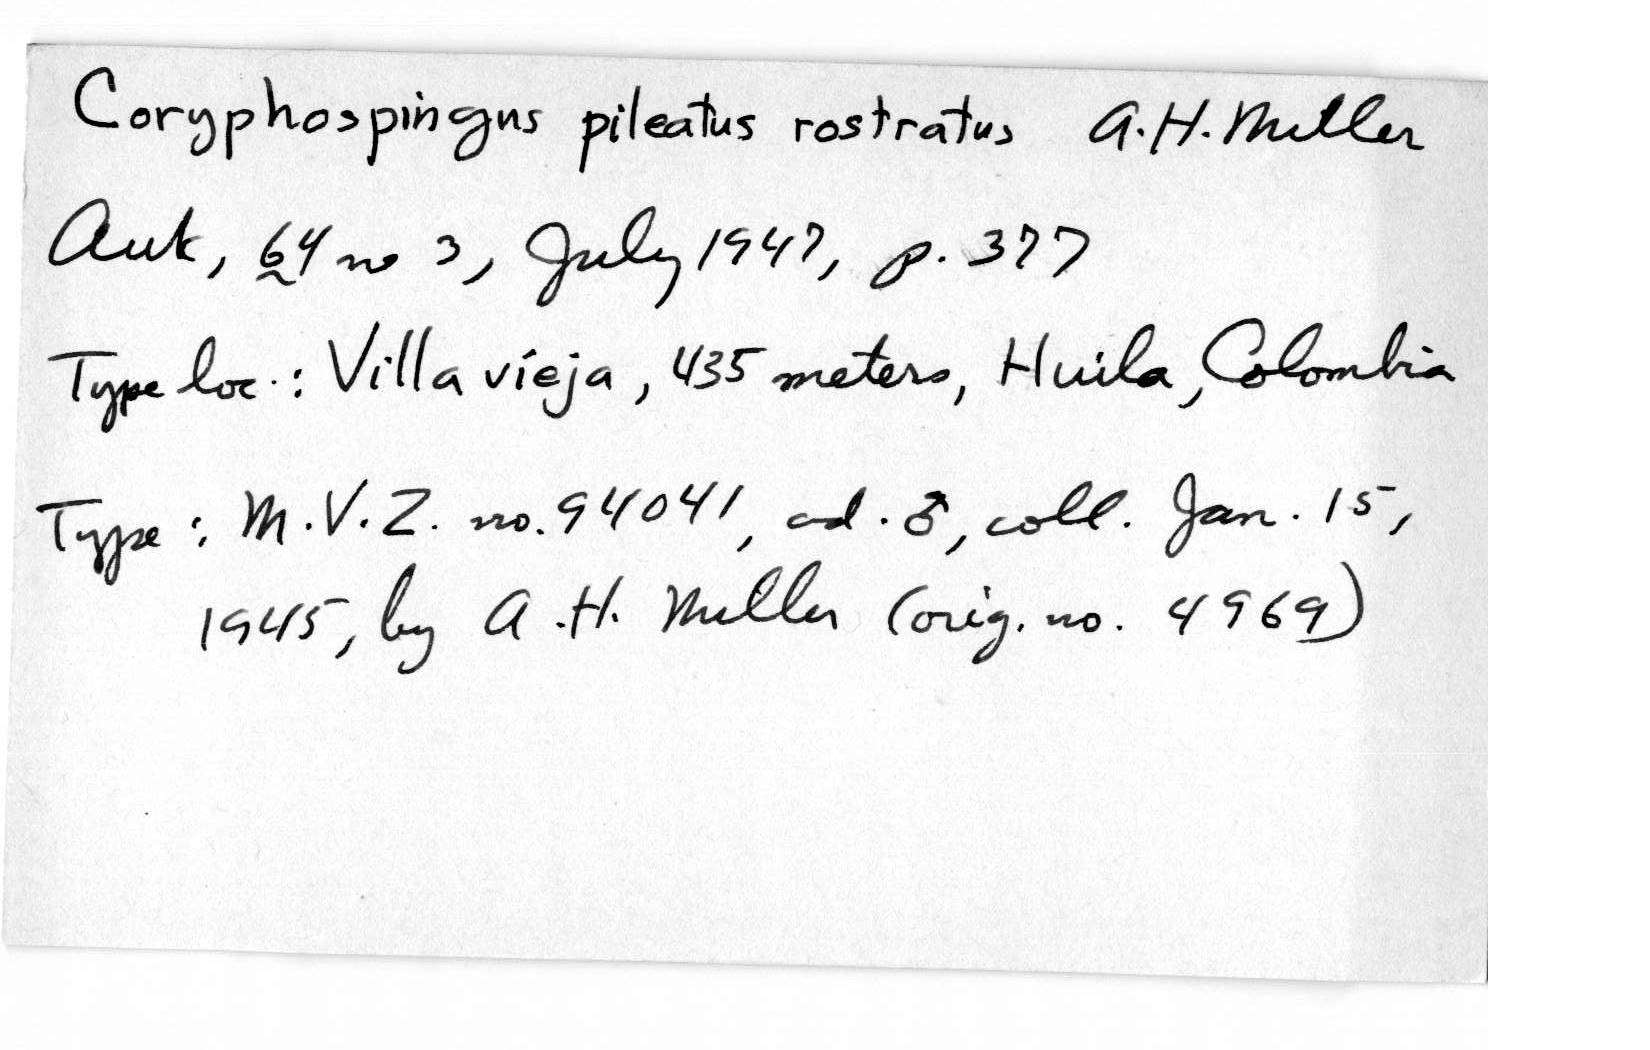 Coryphospingus pileatus rostratus A.H. Miller
Auk, 64 no 3, July 1947, p. 377
Type loc.: Villa vieja, 435 meters, Huila, Colombia
Type: M.V.Z. no. 94041, ad. ♂, coll. Jan. 15,
1945, by A.H. Miller (orig. no. 4969)